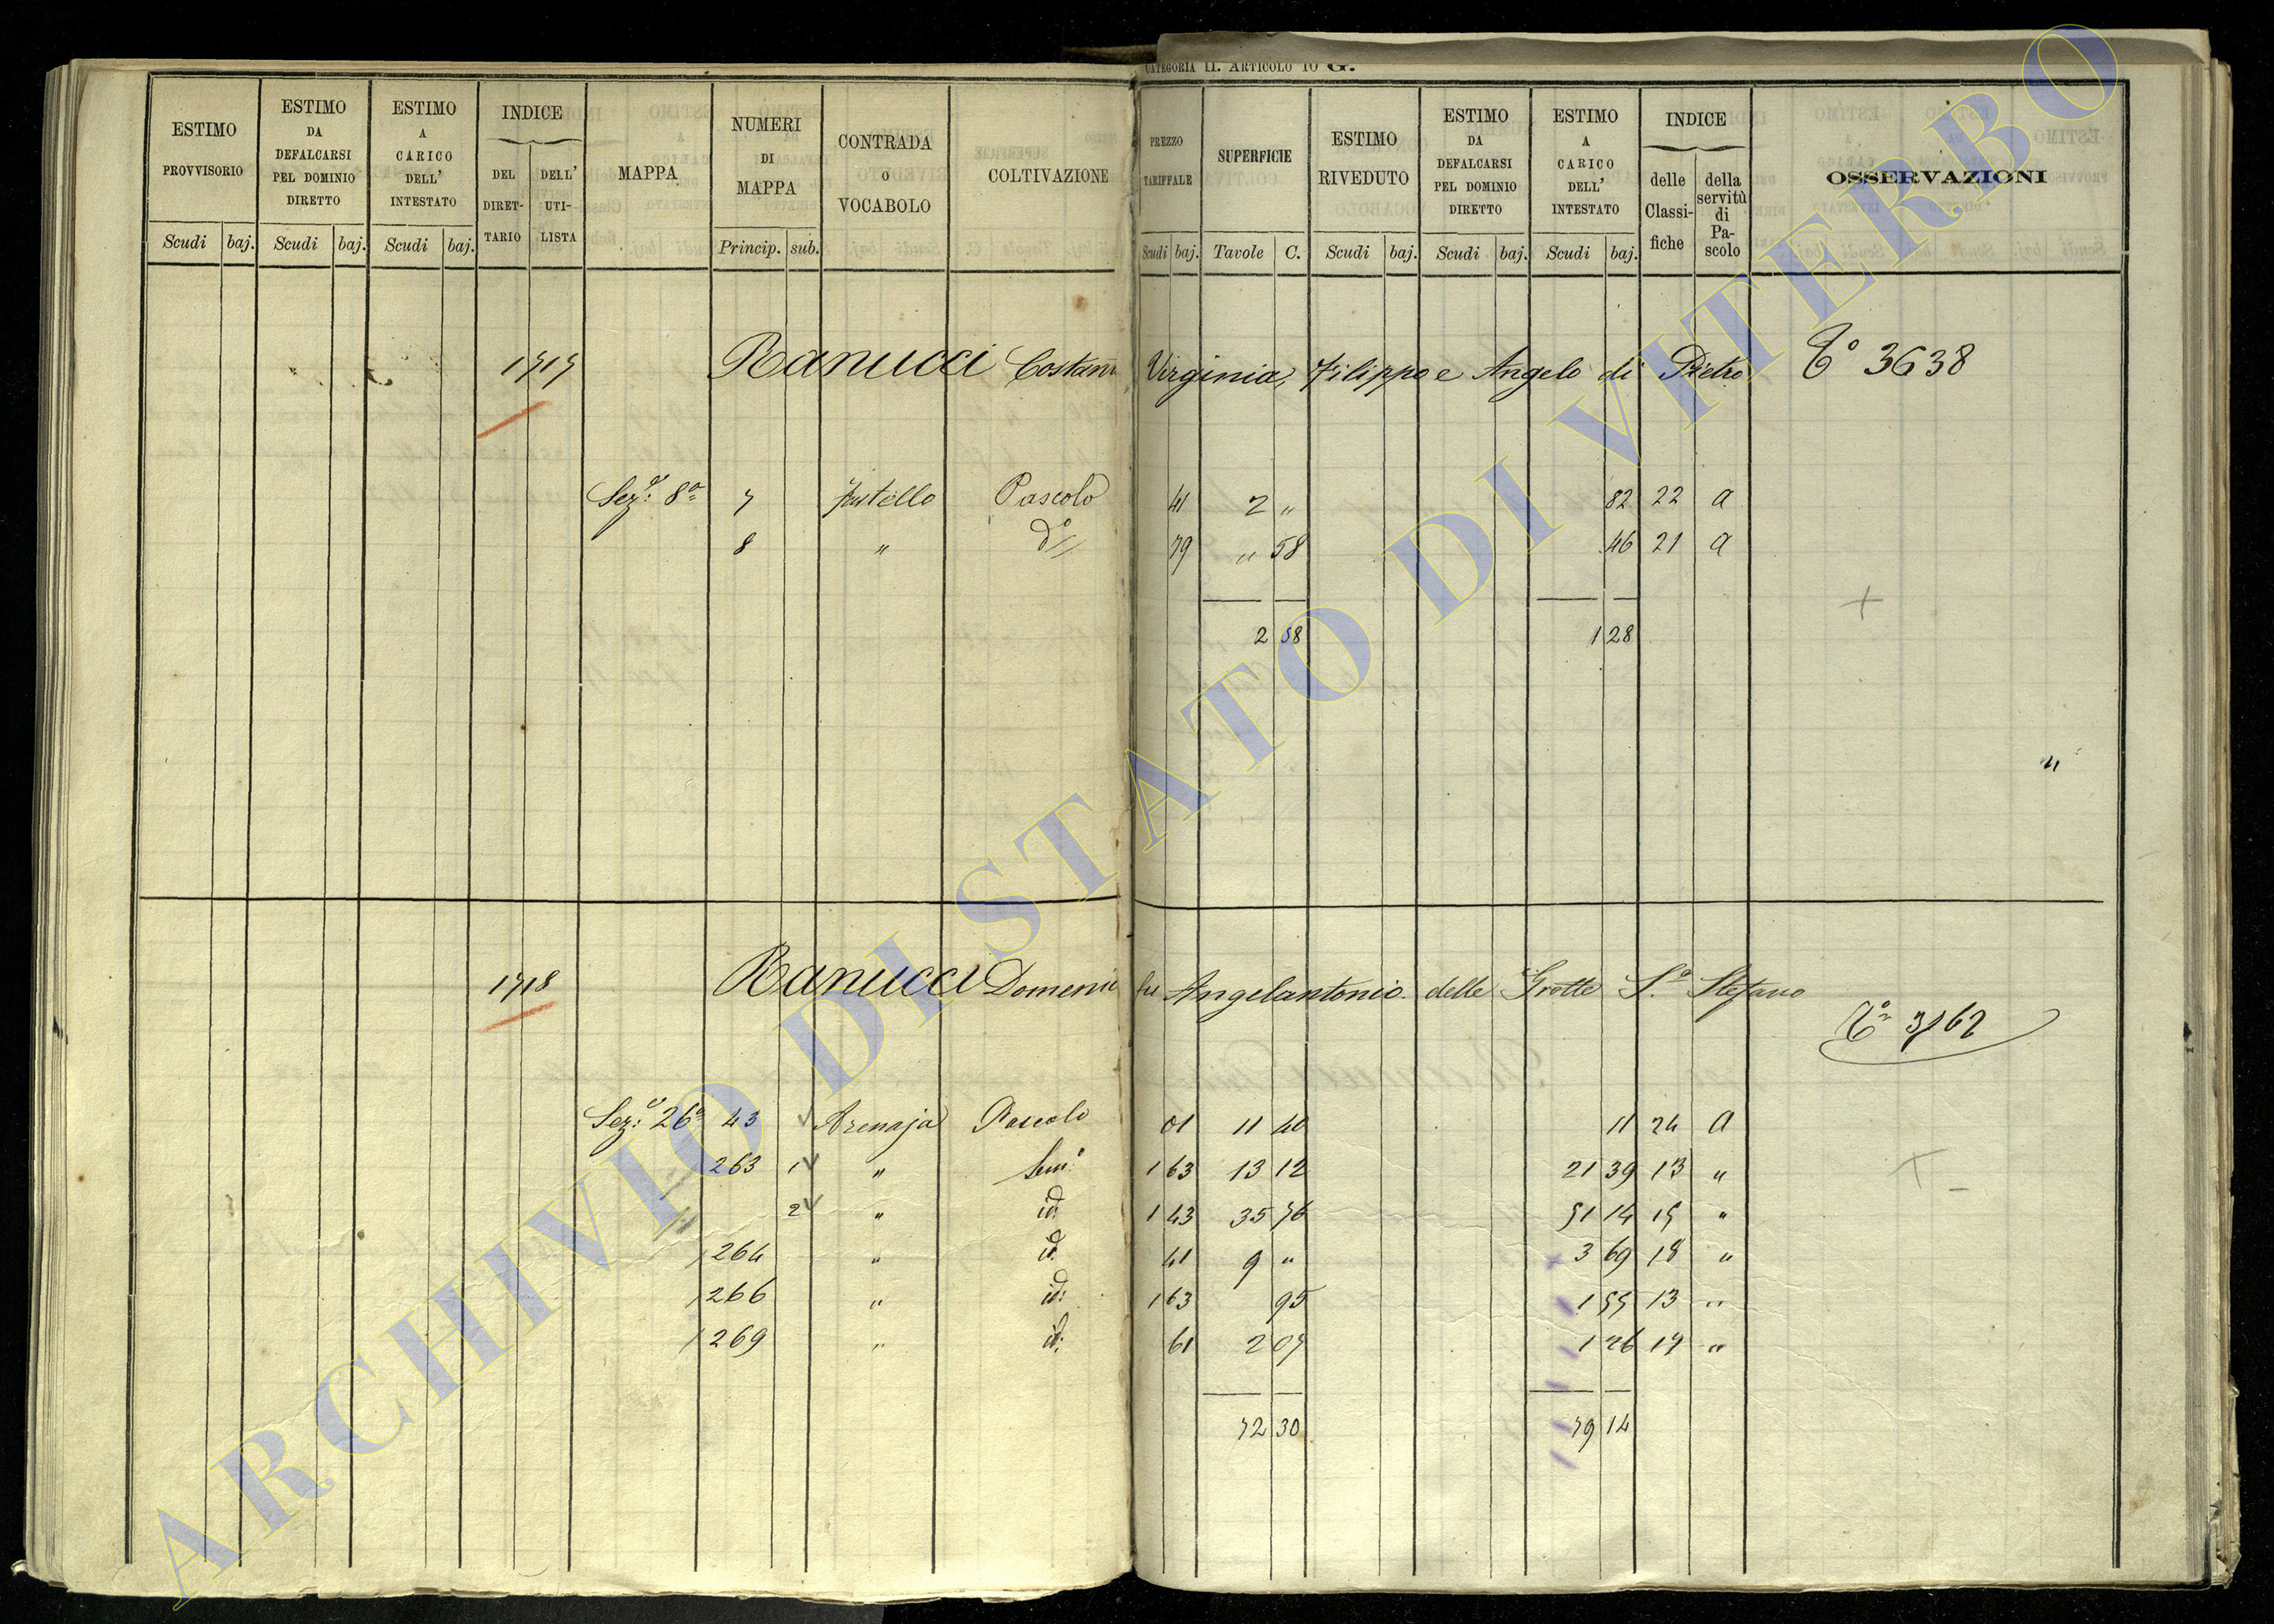 CATEGORIA II. ARTICOLO 10 G.
ESTIMO PROVVISORIO Scudi baj.
ESTIMO DA DEFALCARSI PEL DOMINIO DIRETTO Scudi baj.
ESTIMO A CARICO DELL' INTESTATO Scudi baj.
INDICE DEL DIRETTARIO DELL' UTILISTA
MAPPA
NUMERI DI MAPPA Princip. sub.
CONTRADA O VOCABOLO
COLTIVAZIONE
PREZZO TARIFFALE Scudi baj.
SUPERFICIE Tavole C.
ESTIMO RIVEDUTO Scudi baj.
ESTIMO DA DEFALCARSI PEL DOMINIO DIRETTO Scudi baj.
ESTIMO A CARICO DELL' INTESTATO Scudi baj.
INDICE delle Classifiche della servitù di Pascolo
OSSERVAZIONI
1717 Ranucci Virginia, Filippo e Angelo di Pietro Tº 3638
Sez.e 8a 7 Pascolo 41 2 " 82 22 a
8 " dº 79 " 58 46 21 a
2 58 1 28
1718 Ranucci fu Angelantonio delle Grotte S.o Stefano
Tº 3762
Sez.e 26a 43 Arenaja Pascolo 01 11 40 11 24 a
263 1 " Sem.o 1 63 13 12 21 39 13 "
2 " id. 1 43 35 76 51 14 15 "
264 " id. 41 9 " 3 69 18 "
266 " id: 1 63 95 1 55 13 "
269 " id: 61 2 07 1 26 17 "
72 30 79 14
ARCHIVIO DI STATO DI VITERBO